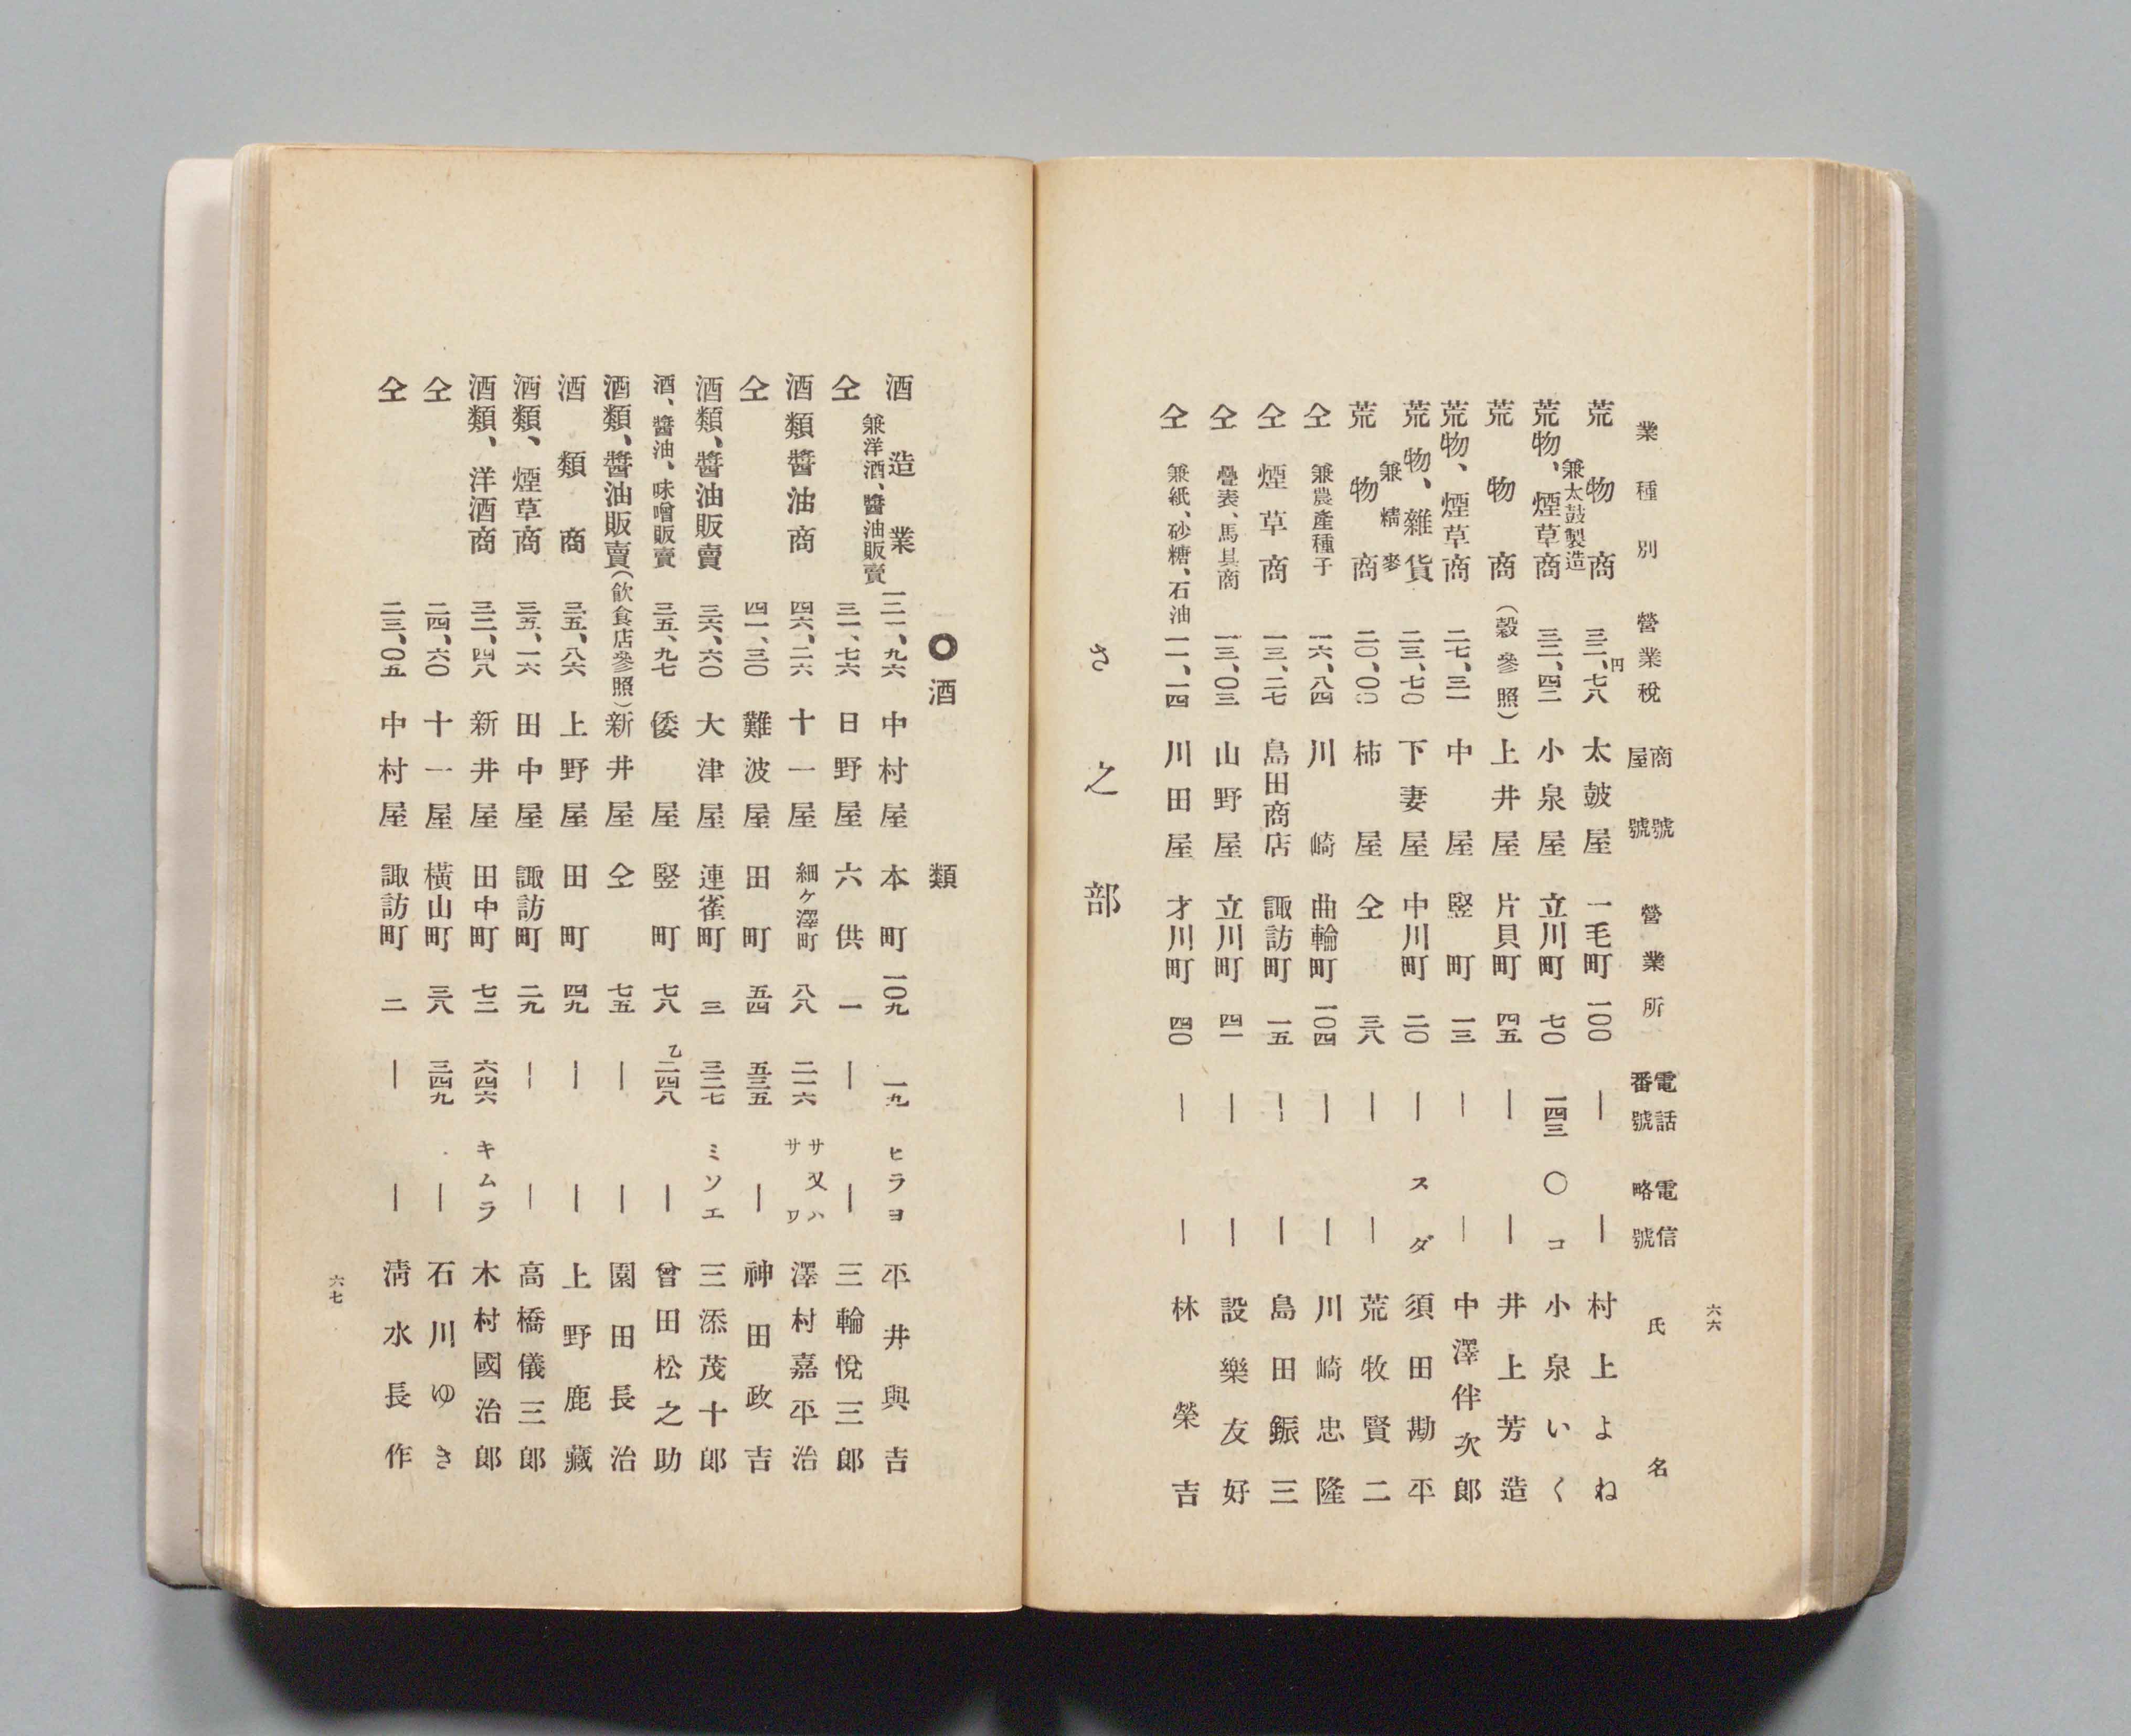 六六
業種別 營業稅 商號 屋號 營業所 電話番號 電信略號 氏名
荒物商 兼太鼓製造 三二、七八円 太皷屋 一毛町 一〇〇 ― ― 村上よね
荒物、煙草商 三二、四二 小泉屋 立川町 七〇 一四三 〇コ 小泉いく
荒物商 (穀參照) 上井屋 片貝町 四五 ― ― 井上芳造
荒物、煙草商 二七、三一 中屋 竪町 一三 ― ― 中澤伴次郎
荒物、雜貨 兼精麥 二三、七〇 下妻屋 中川町 二〇 ― スダ 須田勘平
荒物商 二〇、〇〇 柿屋 仝 三八 ― ― 荒牧賢二
仝 兼農產種子 一六、八四 川崎 曲輪町 一〇四 ― ― 川崎忠隆
仝 煙草商 一三、二七 島田商店 諏訪町 一五 ― ― 島田鋠三
仝 疊表、馬具商 一三、〇三 山野屋 立川町 四一 ― ― 設樂友好
仝 兼紙、砂糖、石油 一一、一四 川田屋 才川町 四〇 ― ― 林榮吉
さ之部
〇酒類
酒造業 兼洋酒、醬油販賣 一二一、九六 中村屋 本町 一〇九 一九 ヒラヨ 平井與吉
仝 三一、七六 日野屋 六供 一 ― ― 三輪悅三郎
酒類醬油商 四六、二六 十一屋 細ヶ澤町 八八 二一六 サ又ハサワ 澤村嘉平治
仝 四一、三〇 難波屋 田町 五四 五三五 ― 神田政吉
酒類、醬油販賣 三六、六〇 大津屋 連雀町 三 三二七 ミソエ 三添茂十郎
酒、醬油、味噌販賣 三五、九七 倭屋 竪町 七八 乙二四八 ― 曾田松之助
酒類、醬油販賣(飮食店參照) 新井屋 仝 七五 ― ― 園田長治
酒類商 三五、八六 上野屋 田町 四九 ― ― 上野鹿藏
酒類、煙草商 三五、一六 田中屋 諏訪町 二九 ― ― 高橋儀三郎
酒類、洋酒商 三二、四八 新井屋 田中町 七二 六四六 キムラ 木村國治郎
仝 二四、六〇 十一屋 橫山町 三八 三四九 ― 石川ゆき
仝 二三、〇五 中村屋 諏訪町 二 ― ― 淸水長作
六七